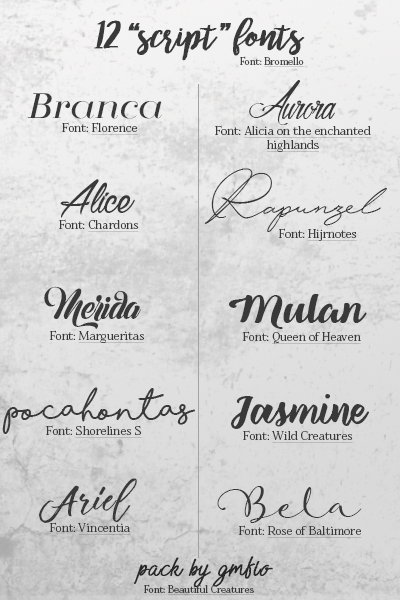 12 “script” fonts
Font: Bromello
Branca
Font: Florence
Aurora
Font: Alicia on the enchanted
highlands
Alice
Font: Chardons
Rapunzel
Font: Hijrnotes
Merida
Font: Margueritas
Mulan
Font: Queen of Heaven
pocahontas
Font: Shorelines S
Jasmine
Font: Wild Creatures
Ariel
Font: Vincentia
Bela
Font: Rose of Baltimore
pack by gmfio
Font: Beautiful Creatures